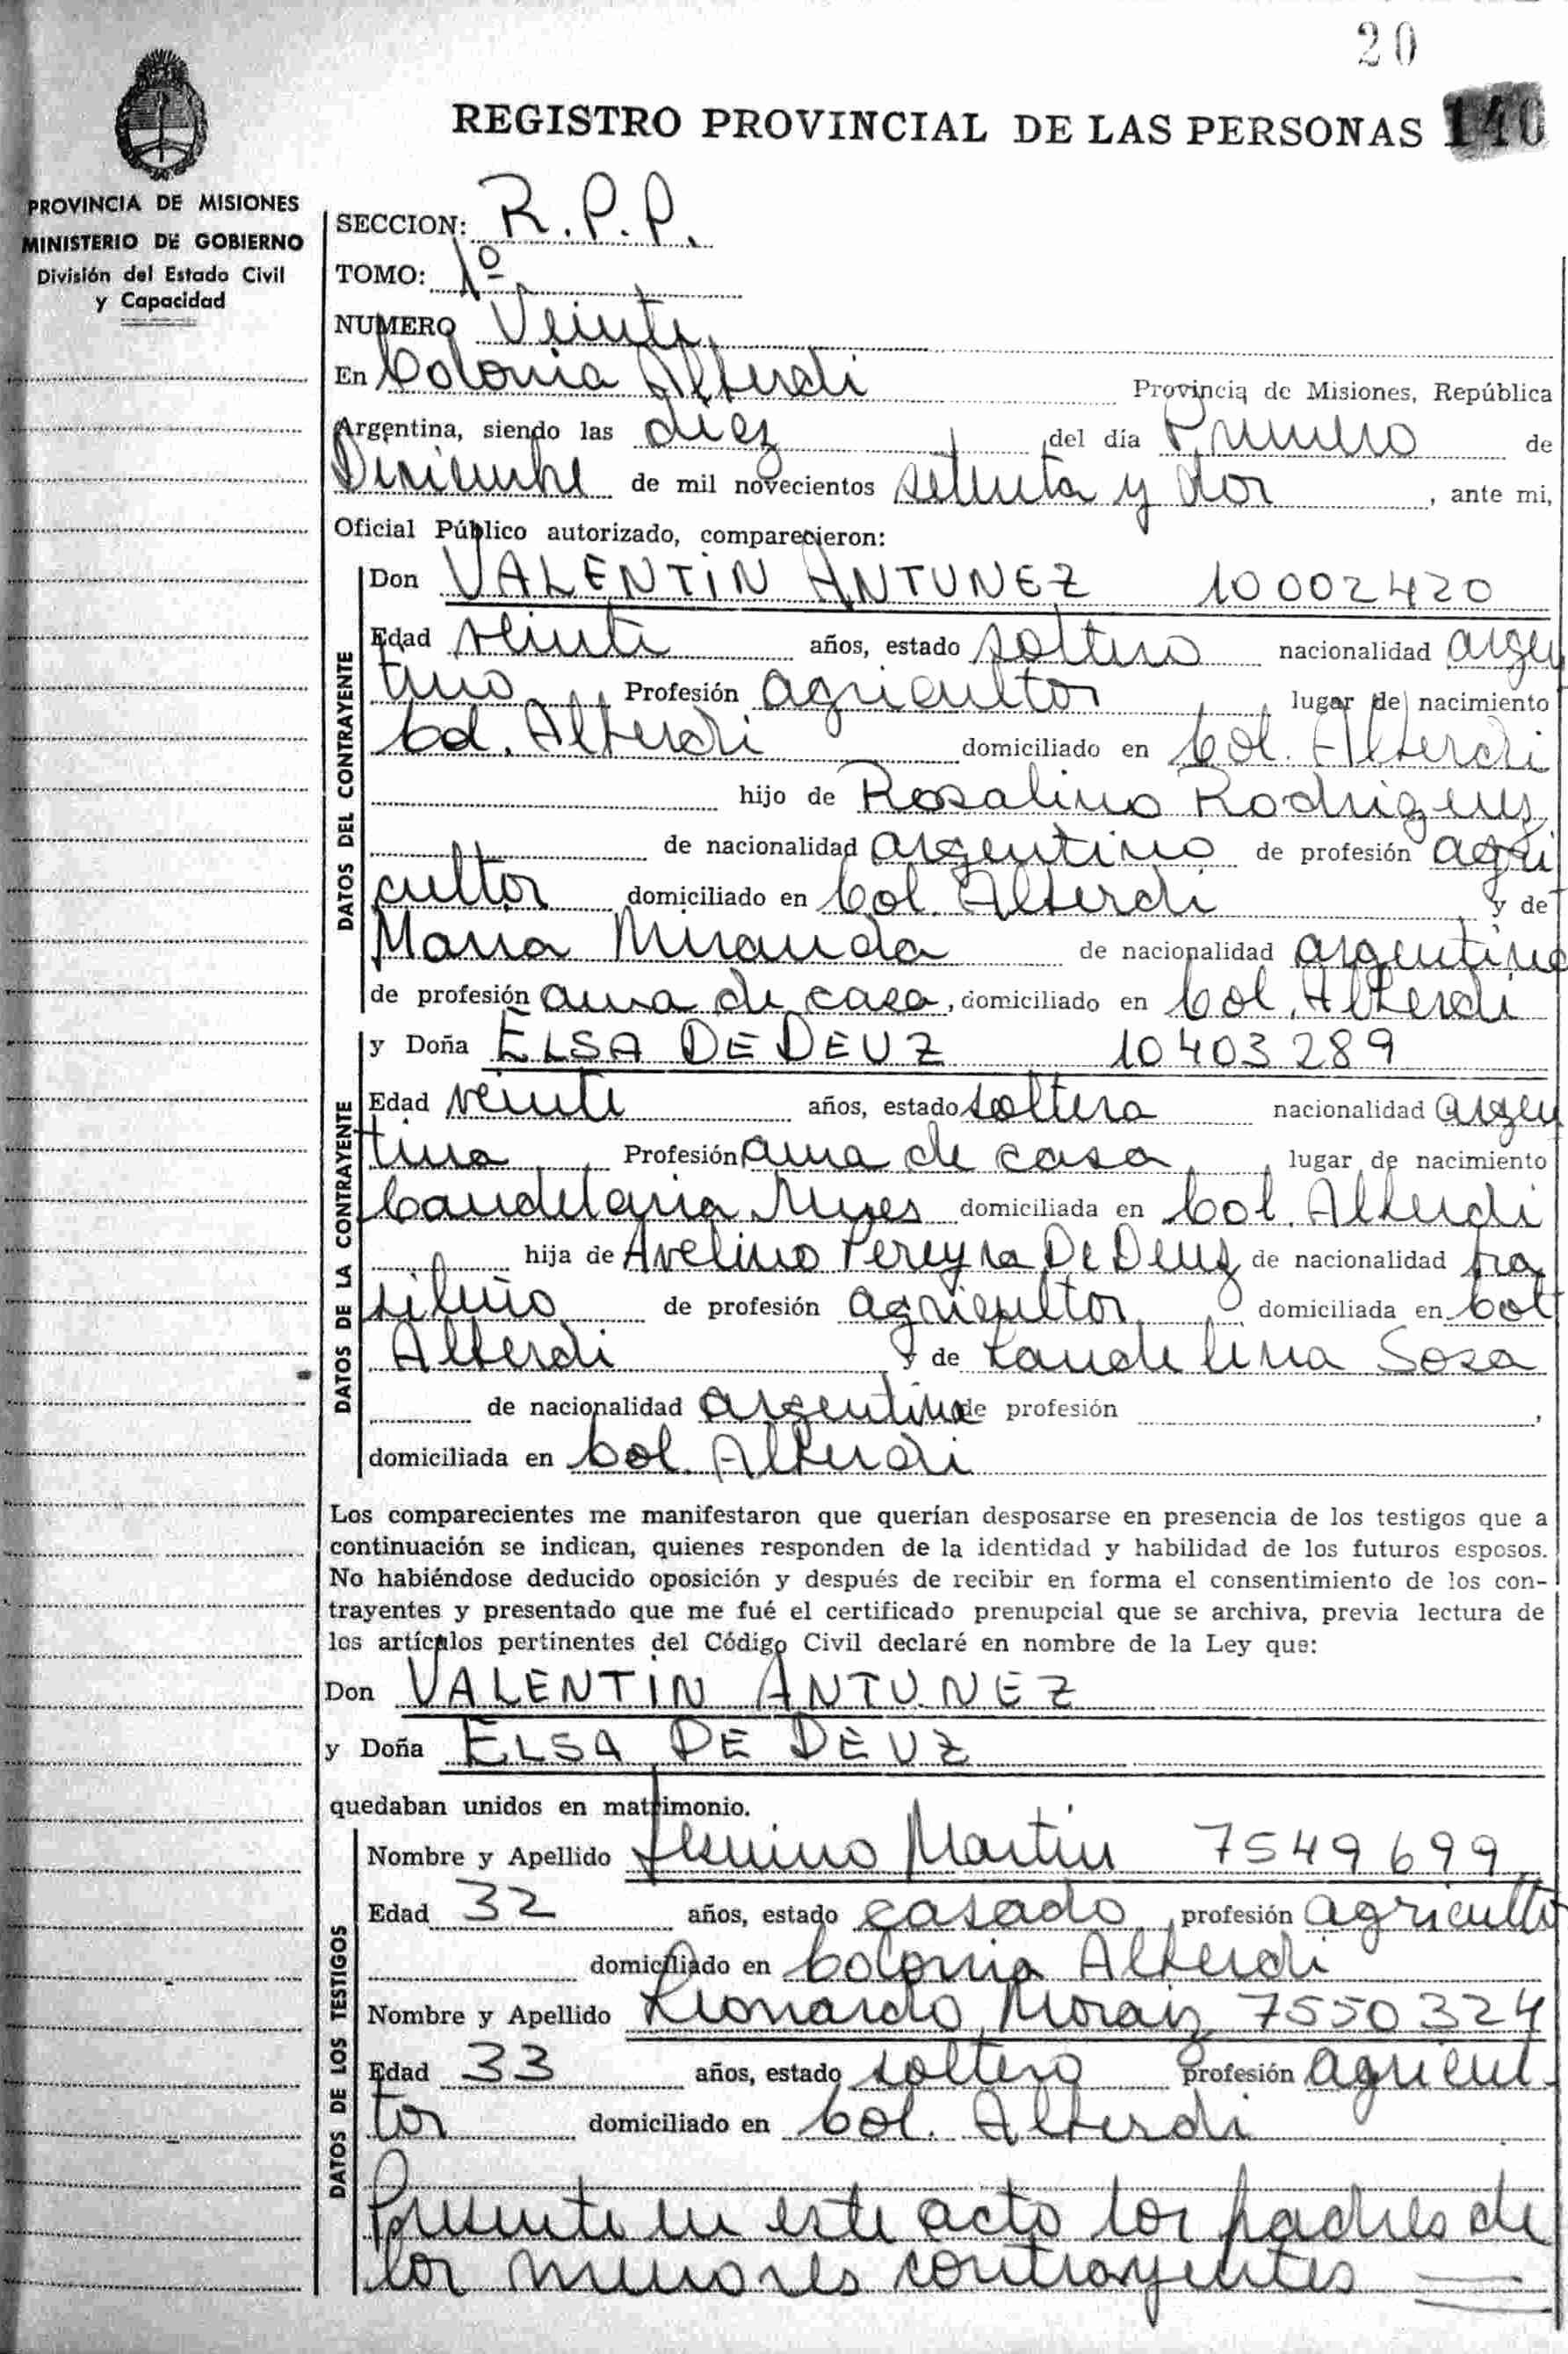 20
REGISTRO PROVINCIAL DE LAS PERSONAS 140
PROVINCIA DE MISIONES
MINISTERIO DE GOBIERNO
División del Estado Civil
y Capacidad
SECCION: R.P.P.
TOMO: 1º
NUMERO Veinte
En Colonia Alberdi Provincia de Misiones, República
Argentina, siendo las diez del día Primero de
Diciembre de mil novecientos setenta y dos, ante mi,
Oficial Público autorizado, comparecieron:
DATOS DEL CONTRAYENTE
Don VALENTIN ANTUNEZ 10002420
Edad veinte años, estado soltero nacionalidad argen
tino Profesión agricultor lugar de nacimiento
Col. Alberdi domiciliado en Col. Alberdi
hijo de Rosalino Rodriguez
de nacionalidad argentino de profesión agri
cultor domiciliado en Col. Alberdi y de
Maria Miranda de nacionalidad argentina
de profesión ama de casa, domiciliado en Col. Alberdi
DATOS DE LA CONTRAYENTE
y Doña ELSA DE DEUZ 10403289
Edad veinte años, estado soltera nacionalidad argen
tina Profesión ama de casa lugar de nacimiento
Candelaria Mnes domiciliada en Col. Alberdi
hija de Avelino Pereyra De Deuz de nacionalidad bra
sileño de profesión agricultor domiciliada en Col
Alberdi y de Candelina Sosa
de nacionalidad argentina de profesión ,
domiciliada en Col. Alberdi
Los comparecientes me manifestaron que querían desposarse en presencia de los testigos que a
continuación se indican, quienes responden de la identidad y habilidad de los futuros esposos.
No habiéndose deducido oposición y después de recibir en forma el consentimiento de los con-
trayentes y presentado que me fué el certificado prenupcial que se archiva, previa lectura de
los artículos pertinentes del Código Civil declaré en nombre de la Ley que:
Don VALENTIN ANTUNEZ
y Doña ELSA DE DEUZ
quedaban unidos en matrimonio.
DATOS DE LOS TESTIGOS
Nombre y Apellido Martin 7549699
Edad 32 años, estado casado, profesión agricultor
domiciliado en Colonia Alberdi
Nombre y Apellido Leonardo Moraiz 7550324
Edad 33 años, estado soltero profesión agricul-
tor domiciliado en Col. Alberdi
Presente en este acto los padres de
los menores contrayentes